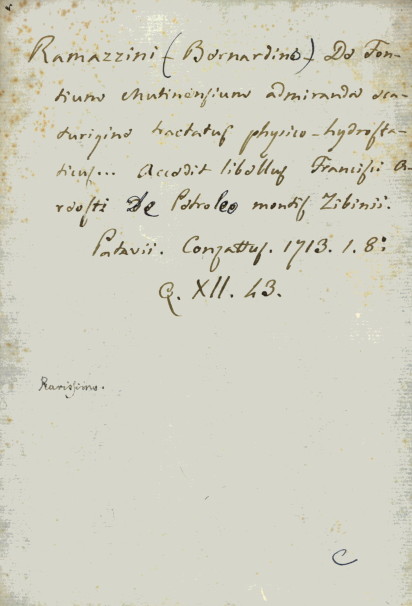 Ramazzini (Bernardino) De Fon-
tium Mutinensium admiranda sca-
turigine tractatus physico-hydrosta-
ticus... Accedit libellus Francisci A-
rdosti De Petroleo montis Zibinii.
Patavii. Conzattus. 1713. 1. 8:
Q. XII. 43.
Rarissimo.
C